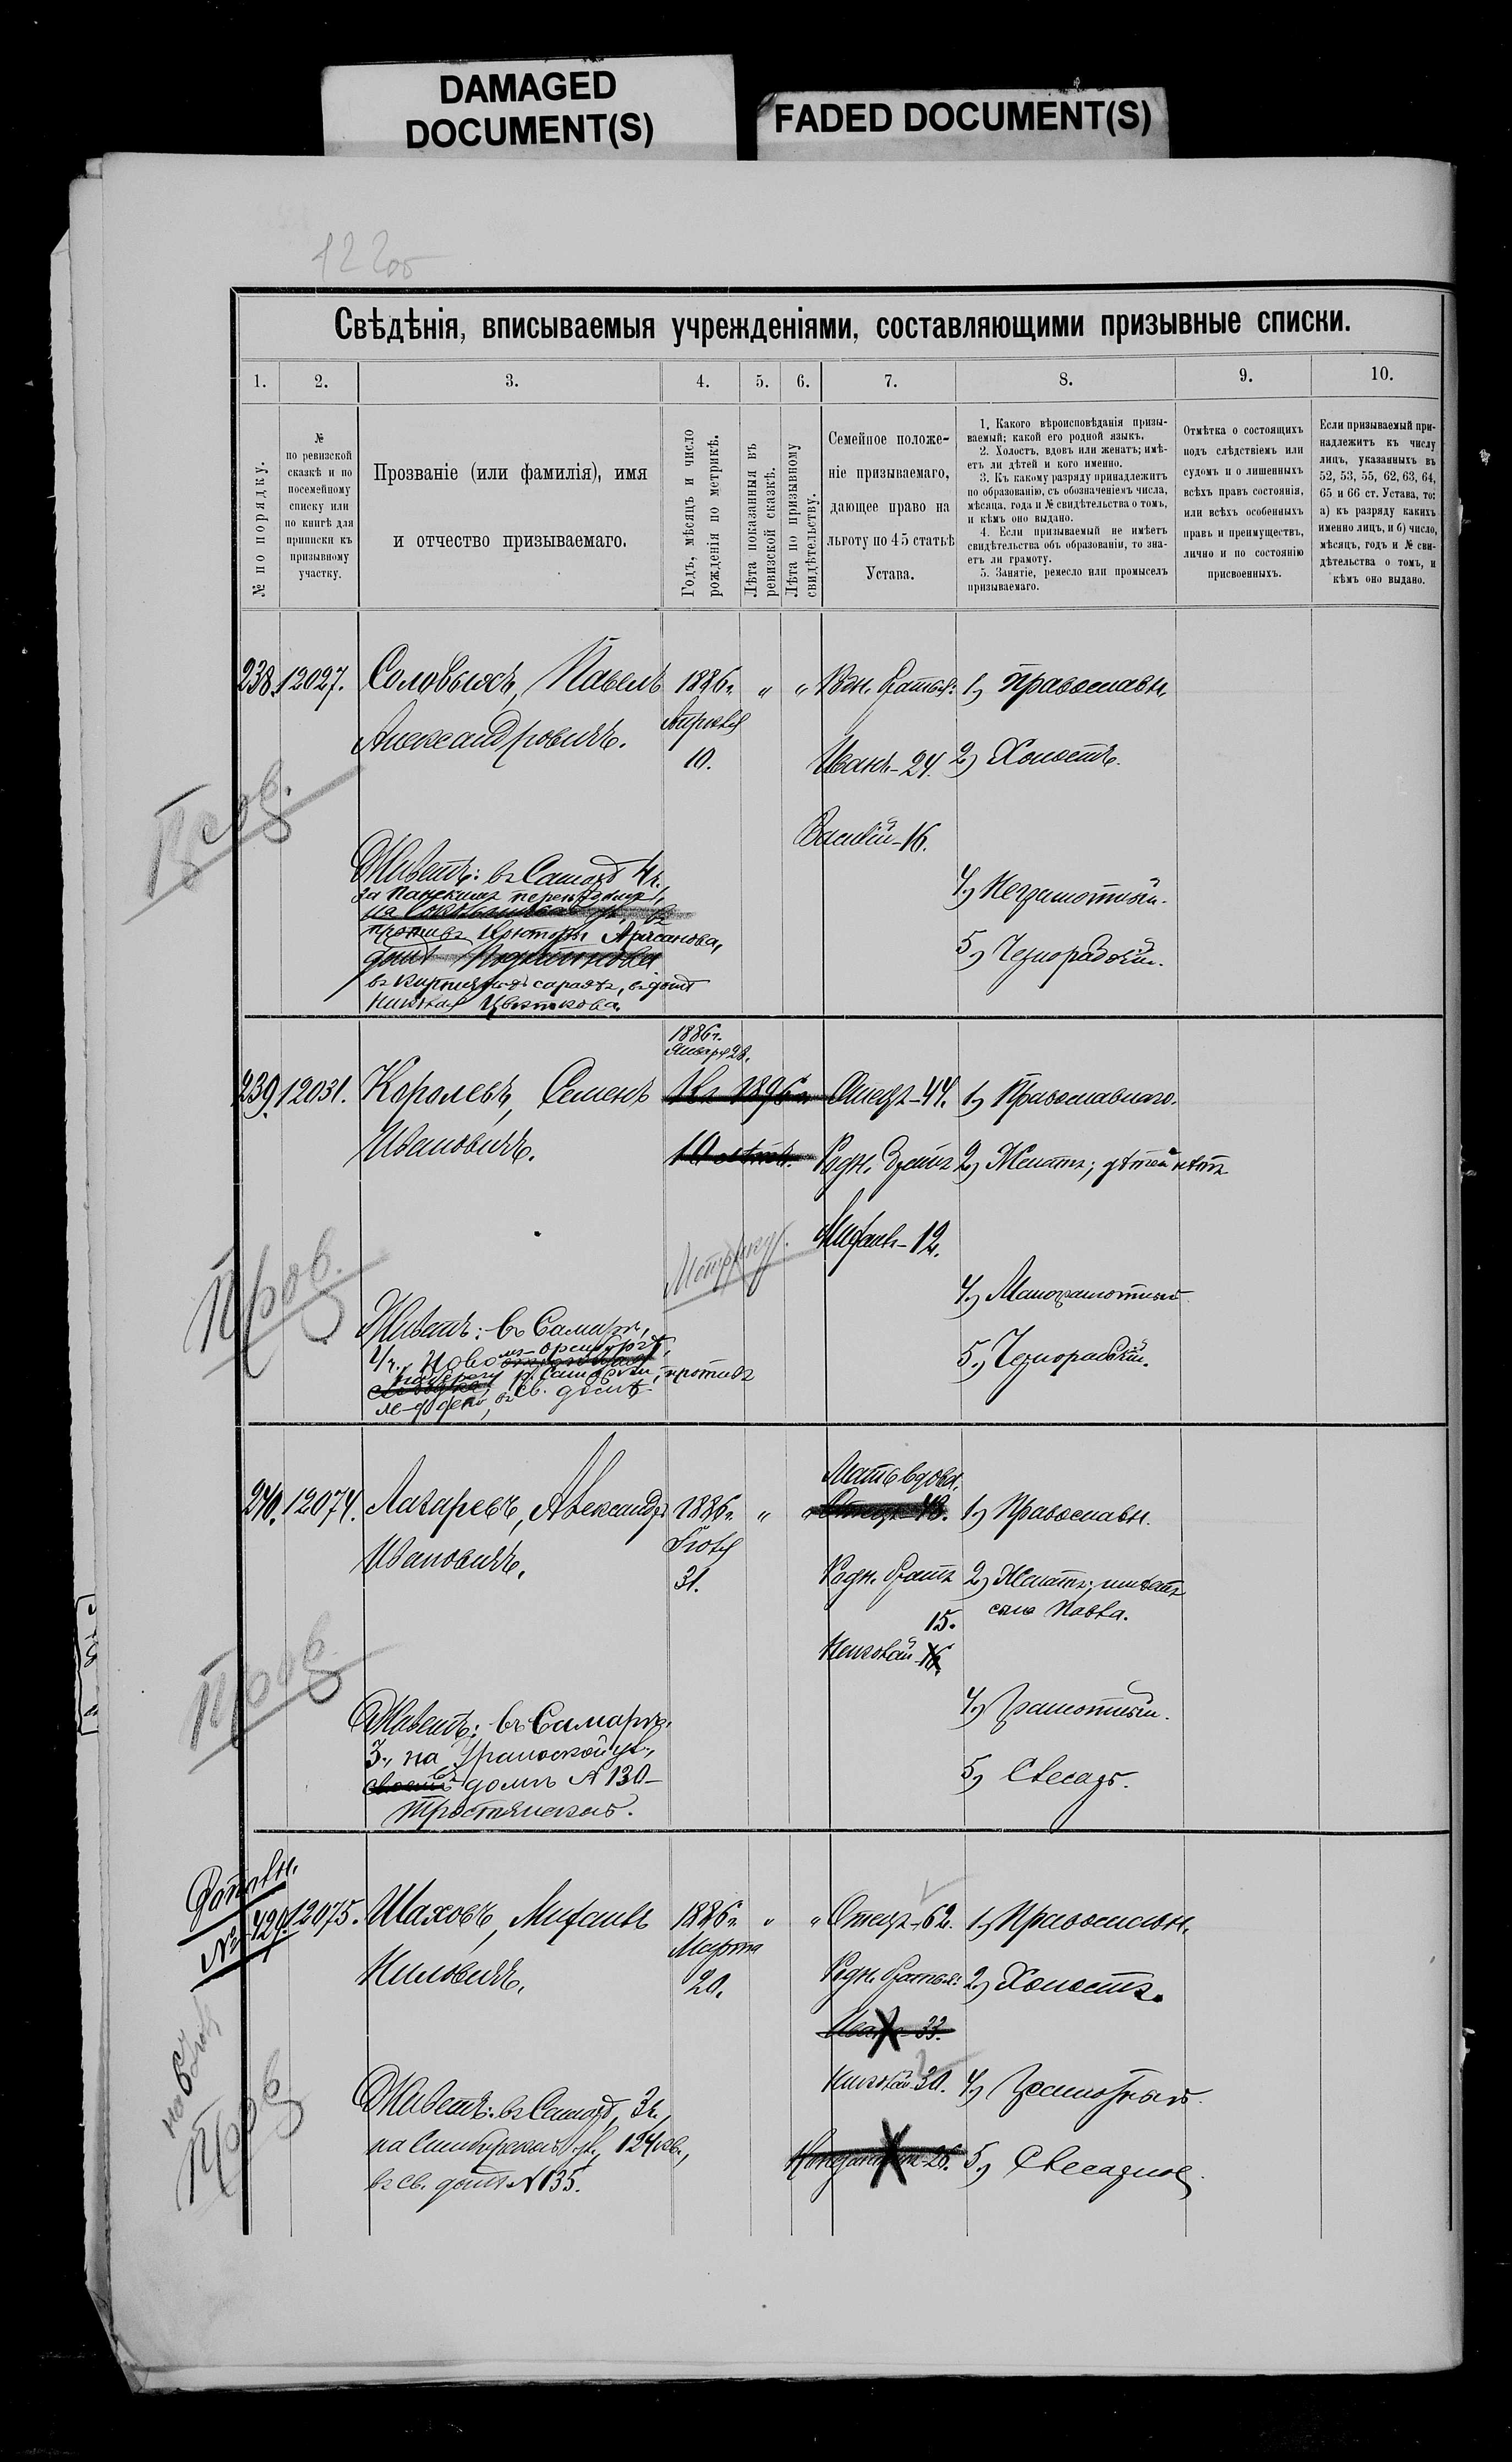 DAMAGED
DOCUMENT(S)
FADED DOCUMENT(S)
122об
Свѣдѣнія, вписываемыя учрежденіями, составляющими призывные списки.
1. 2. 3. 4. 5. 6. 7. 8. 9. 10.
№ по порядку.
№
по ревизской
сказкѣ и по
посемейному
списку или
по книгѣ для
приписки къ
призывному
участку.
Прозваніе (или фамилія), имя
и отчество призываемаго.
Годъ, мѣсяцъ и число
рожденія по метрикѣ.
Лѣта показанныя въ
ревизской сказкѣ.
Лѣта по призывному
свидѣтельству.
Семейное положе-
ніе призываемаго,
дающее право на
льготу по 45 статьѣ
Устава.
1. Какого вѣроисповѣданія призы-
ваемый; какой его родной языкъ.
2. Холостъ, вдовъ или женатъ; имѣ-
етъ ли дѣтей и кого именно.
3. Къ какому разряду принадлежитъ
по образованію, съ обозначеніемъ числа,
мѣсяца, года и № свидѣтельства о томъ,
и кѣмъ оно выдано.
4. Если призываемый не имѣетъ
свидѣтельства объ образованіи, то зна-
етъ ли грамоту.
5. Занятіе, ремесло или промыселъ
призываемаго.
Отмѣтка о состоящихъ
подъ слѣдствіемъ или
судомъ и о лишенныхъ
всѣхъ правъ состоянія,
или всѣхъ особенныхъ
правъ и преимуществъ,
лично и по состоянію
присвоенныхъ.
Если призываемый при-
надлежитъ къ числу
лицъ, указанныхъ въ
52, 53, 55, 62, 63, 64,
65 и 66 ст. Устава, то:
а) къ разряду какихъ
именно лицъ, и б) число,
мѣсяцъ, годъ и № сви-
дѣтельства о томъ, и
кѣмъ оно выдано.
238. 12027. Соловьевъ, Павелъ 1886г. " " братья: 1) Православн.
Александровичъ. Апрѣля
10. Иванъ-24. 2) Холостъ.
Василій-16.
Живетъ: въ Самарѣ 4ч.
за Панскимъ
противъ Аржанова,
въ сараѣ, въ домѣ
Николая Цвѣткова.
4) Неграмотный.
5) Чернорабочій.
Пров.
1886г.
Января 28.
239. 12031. Королевъ, Семенъ Отецъ-44. 1) Православнаго.
Ивановичъ. 10 лѣтъ. Родн. братъ 2) Женатъ; дѣтей нѣтъ
Михаилъ-12.
Пров.
4) Малограмотный
Живетъ: въ Самарѣ,
4ч., Ново
противъ
въ св. домѣ.
5) Чернорабочій.
Мать вдова.
240. 12074. Лазаревъ, Александръ 1886г. " Отецъ-48. 1) Православн.
Ивановичъ. Іюля
31. Родн. братъ 2) Женатъ; имѣетъ
сына Павла.
15.
Николай-16.
Пров.
4) Грамотный.
Живетъ: въ Самарѣ,
3ч., на Уральской ул.,
домъ №130-
Тростянскаго.
5) Слесарь.
Дополн.
№429. 12075. Шаховъ, Михаилъ 1886г. " " Отецъ-62. 1) Православн.
Ниловичъ. Марта
20. Родн. братья: 2) Холостъ.
Иванъ-33.
Николай-30. 4) Грамотный.
Живетъ: въ Самарѣ, 3ч.,
на Симбирской ул., 124кв.,
въ св. домѣ №135.
26. 5) Слесарное
Пров